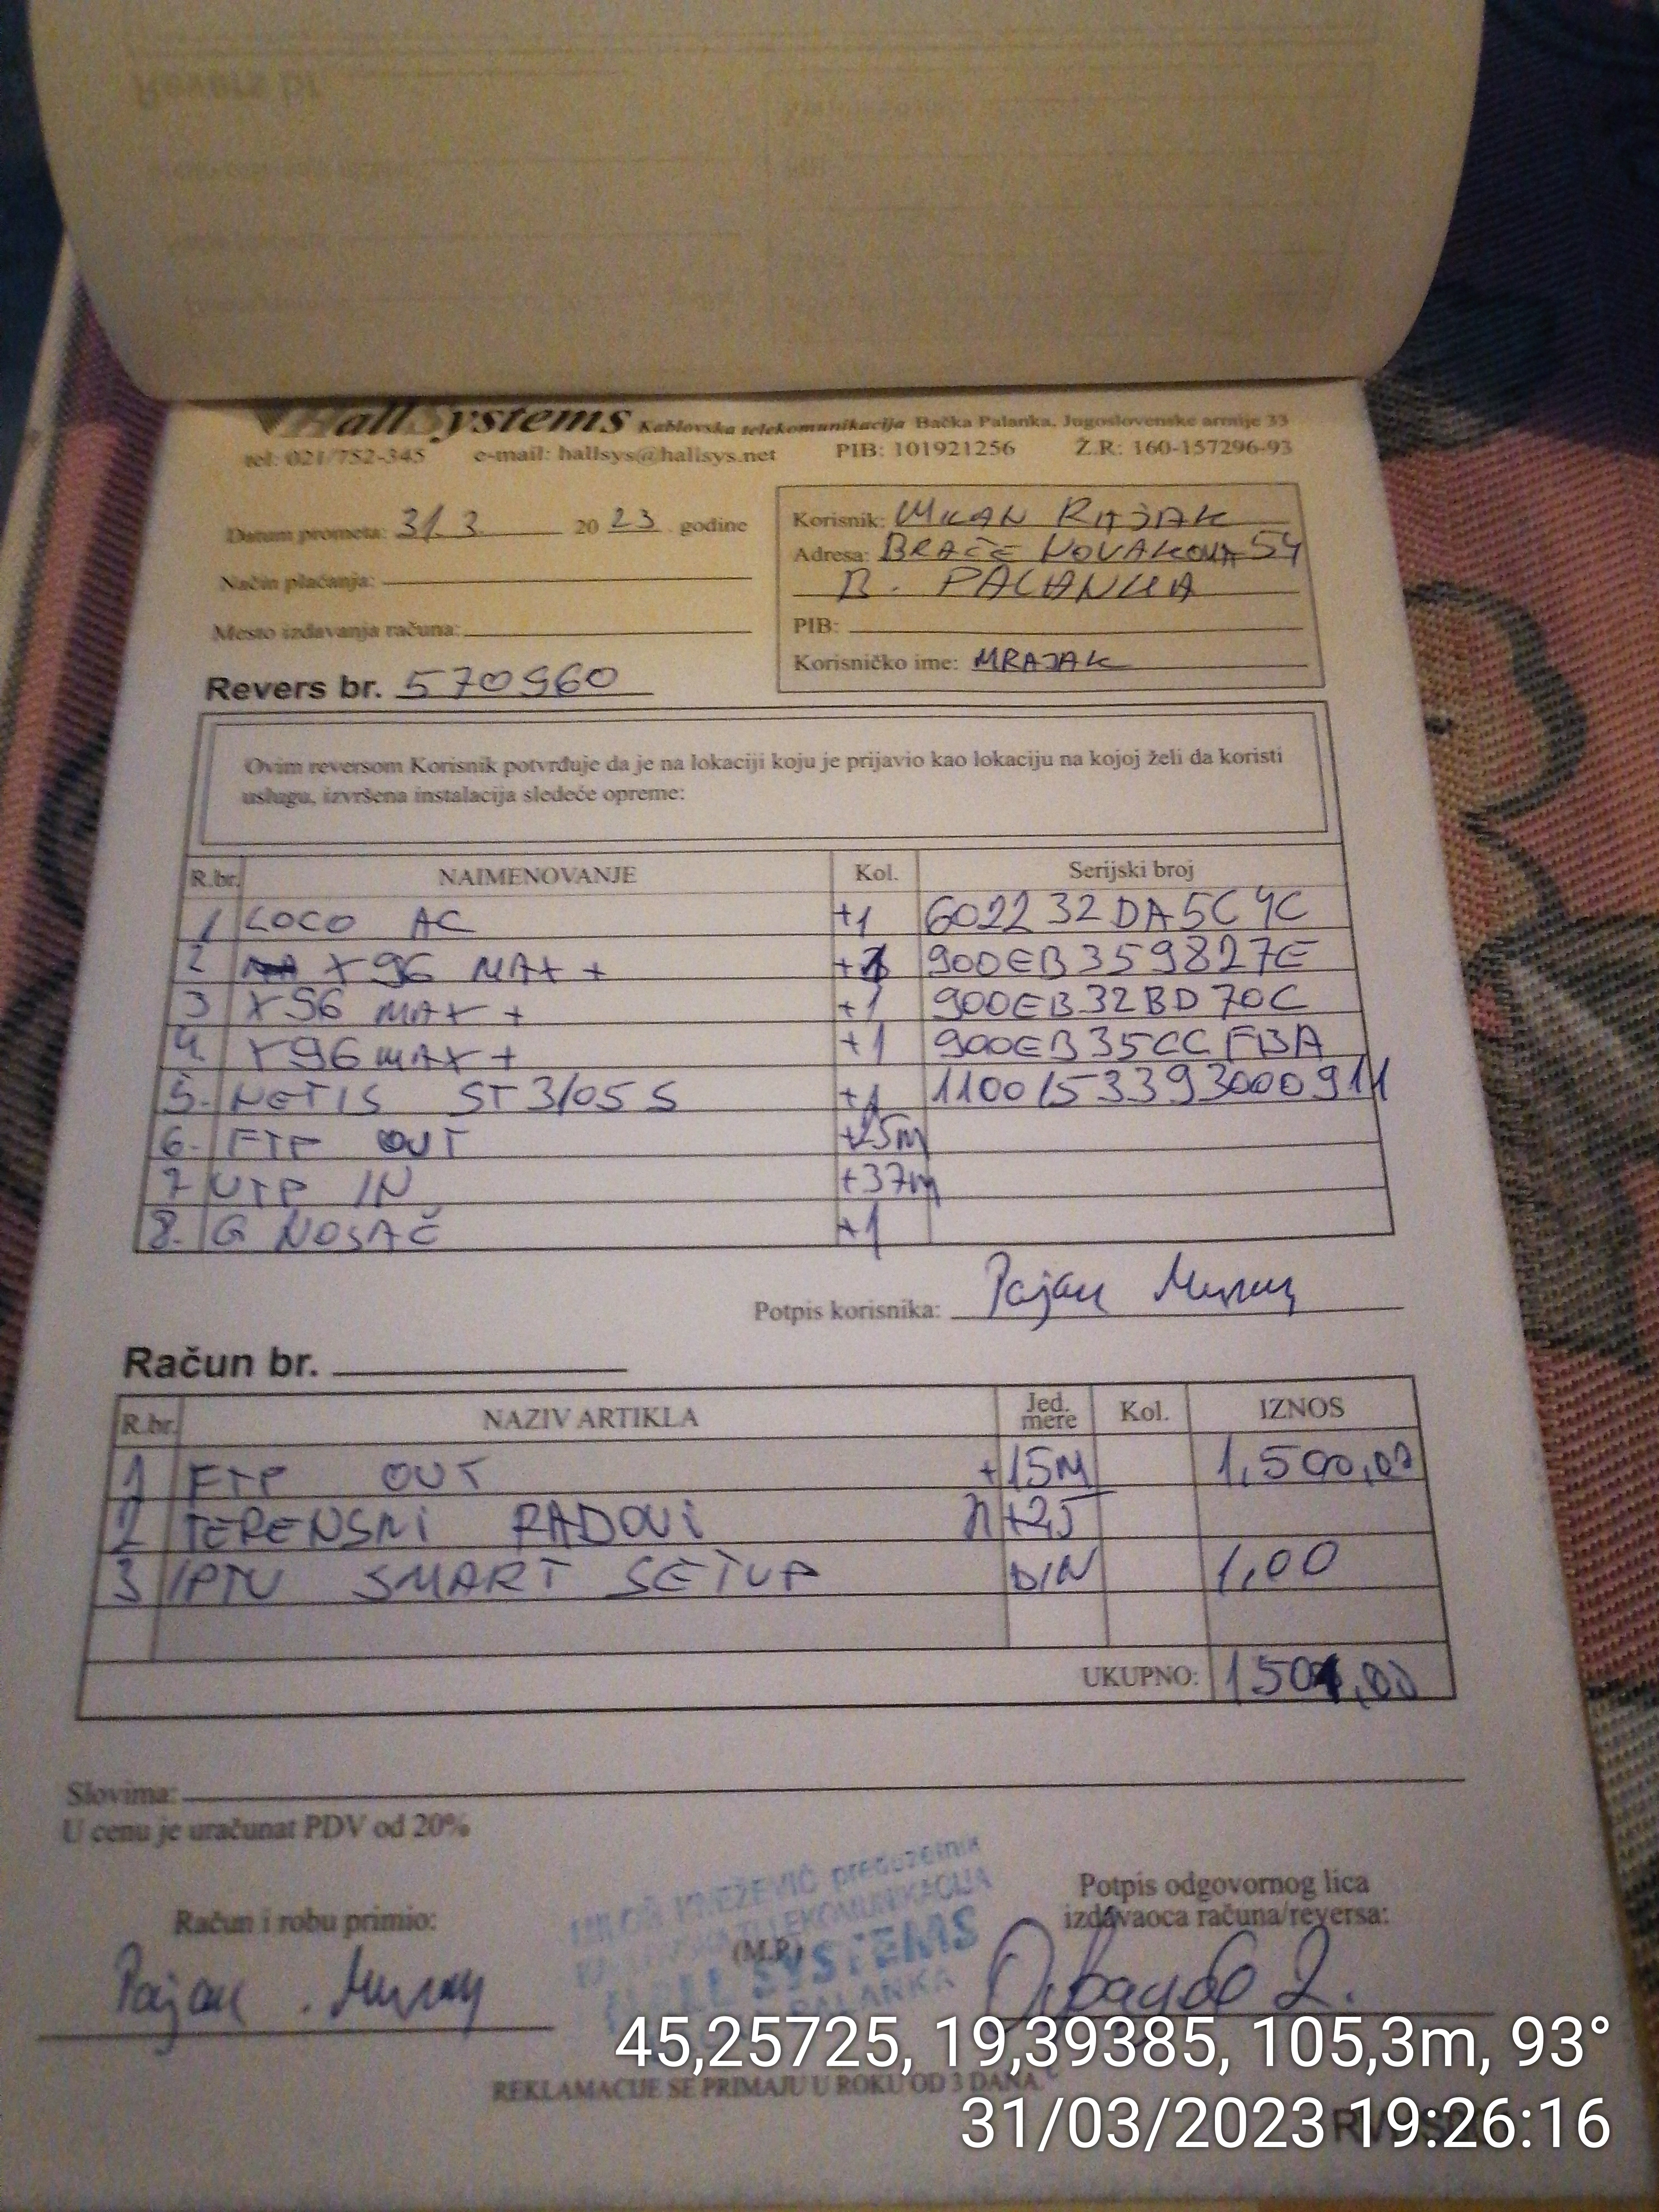 HallSystems Kablovska telekomunikacija Bačka Palanka, Jugoslovenske armije 33
tel: 021/752-345 e-mail: hallsys@hallsys.net PIB: 101921256 Ž.R: 160-157296-93
Datum prometa: 31.3. 20 23 godine
Način plaćanja:
Mesto izdavanja računa:
Revers br. 570960
Korisnik: MILAN RAJAK
Adresa: BRAĆE NOVAKOVA 54
B. PALANKA
PIB:
Korisničko ime: MRAJAK
Ovim reversom Korisnik potvrđuje da je na lokaciji koju je prijavio kao lokaciju na kojoj želi da koristi
uslugu, izvršena instalacija sledeće opreme:
R.br. NAIMENOVANJE Kol. Serijski broj
1 LOCO AC +1 602232DA5C4C
2 X96 MAX + +1 900EB359827E
3 X96 MAX + +1 900EB32BD70C
4. X96 MAX + +1 900EB35CCFBA
5. NETIS ST3105S +1 1100153393000911
6. FTP OUT +25m
7 UTP IN +37m
8. G NOSAČ +1
Potpis korisnika: Рајак Милан
Račun br.
R.br. NAZIV ARTIKLA Jed. mere Kol. IZNOS
1 FTP OUT +15M 1,500,00
2 TERENSKI RADOVI +25
3 IPTV SMART SETUP DIN 1,00
UKUPNO: 1501,00
Slovima:
U cenu je uračunat PDV od 20%
Račun i robu primio:
Рајак Милан
MILOŠ KNEŽEVIĆ preduzetnik
TELEKOMUNIKACIJA
(M.P.)
HALL SYSTEMS
PALANKA
Potpis odgovornog lica
izdavaoca računa/reversa:
45,25725, 19,39385, 105,3m, 93°
REKLAMACIJE SE PRIMAJU U ROKU OD 3 DANA.
31/03/2023 19:26:16